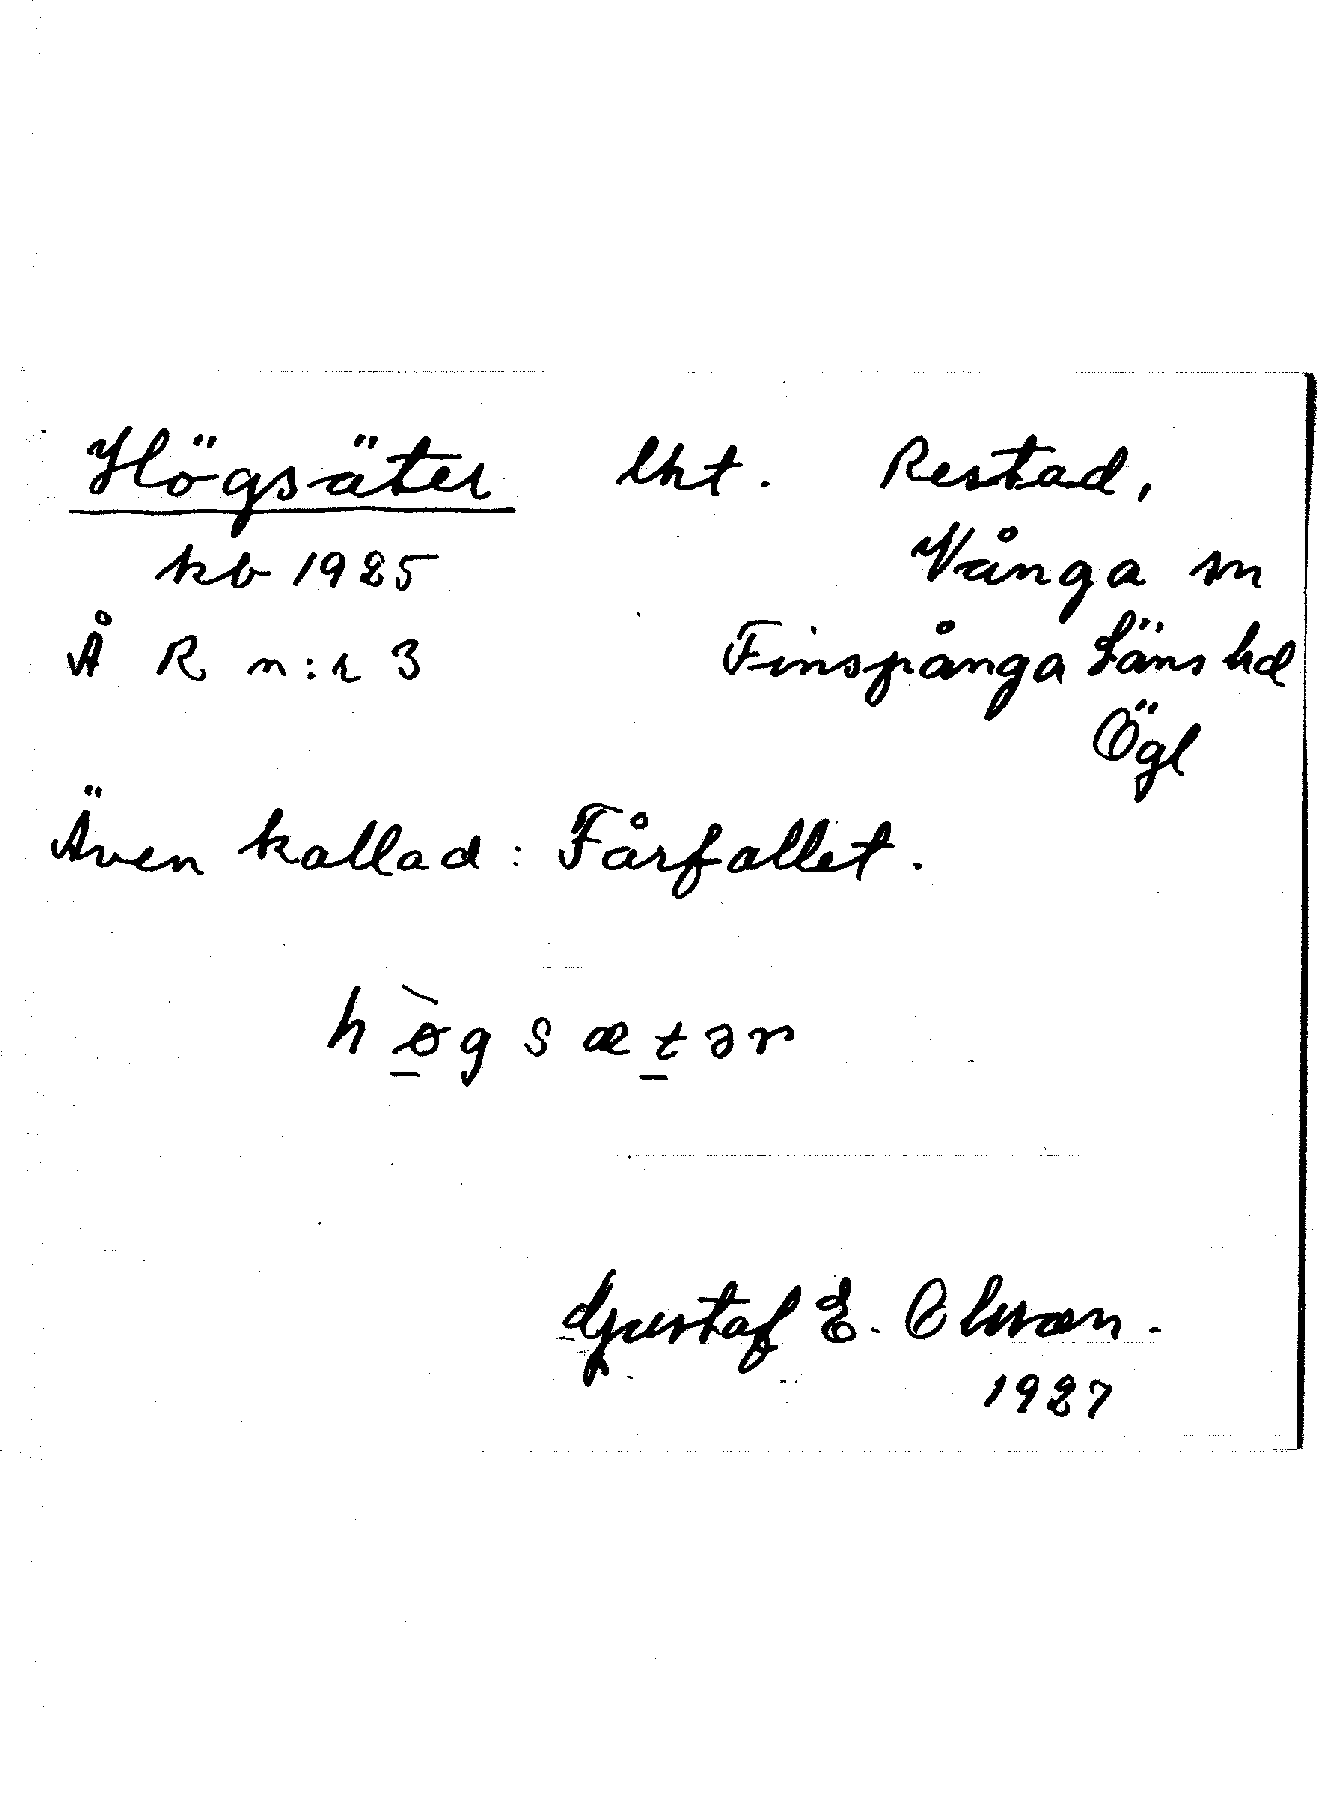 Högsäter lht. Restad,
kb 1925 Vånga sn
Å R n:r 3 Finspånga Läns hd
Ögl
Även kallad: Fårfallet.
hø̀gsætər
Gustaf E. Olsson.
1927